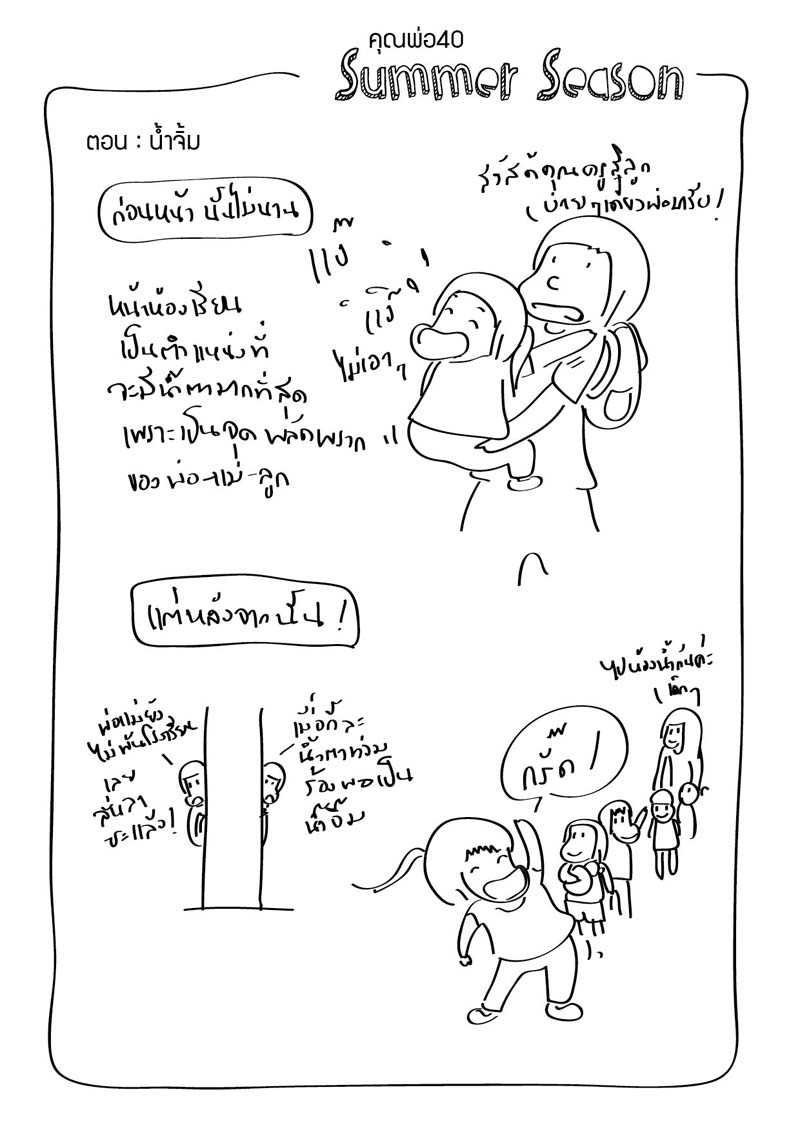 คุณพ่อ40
Summer Season
ตอน : น้ำจิ้ม
ก่อนหน้า นั้นไม่นาน
สวัสดีคุณครูสิลูก
บ่ายๆเดี๋ยวพ่อมารับ!
แง๊
แง๊!
ไม่เอาๆ
หน้าห้องเรียน
เป็นตำแหน่งที่
จะมีน้ำตามากที่สุด
เพราะเป็นจุด พลัดพราก
ของ พ่อ-แม่-ลูก
แต่หลังจากนั้น!
ไปห้องน้ำกันค่ะ
เด็กๆ
พ่อแม่ยัง
ไม่พ้นโรงเรียน
เลย
ลั่นลา
ซะแล้ว!
เมื่อกี้ละ
น้ำตาท่วม
ร้องพอเป็น
น้ำจิ้ม
กรี๊ด!